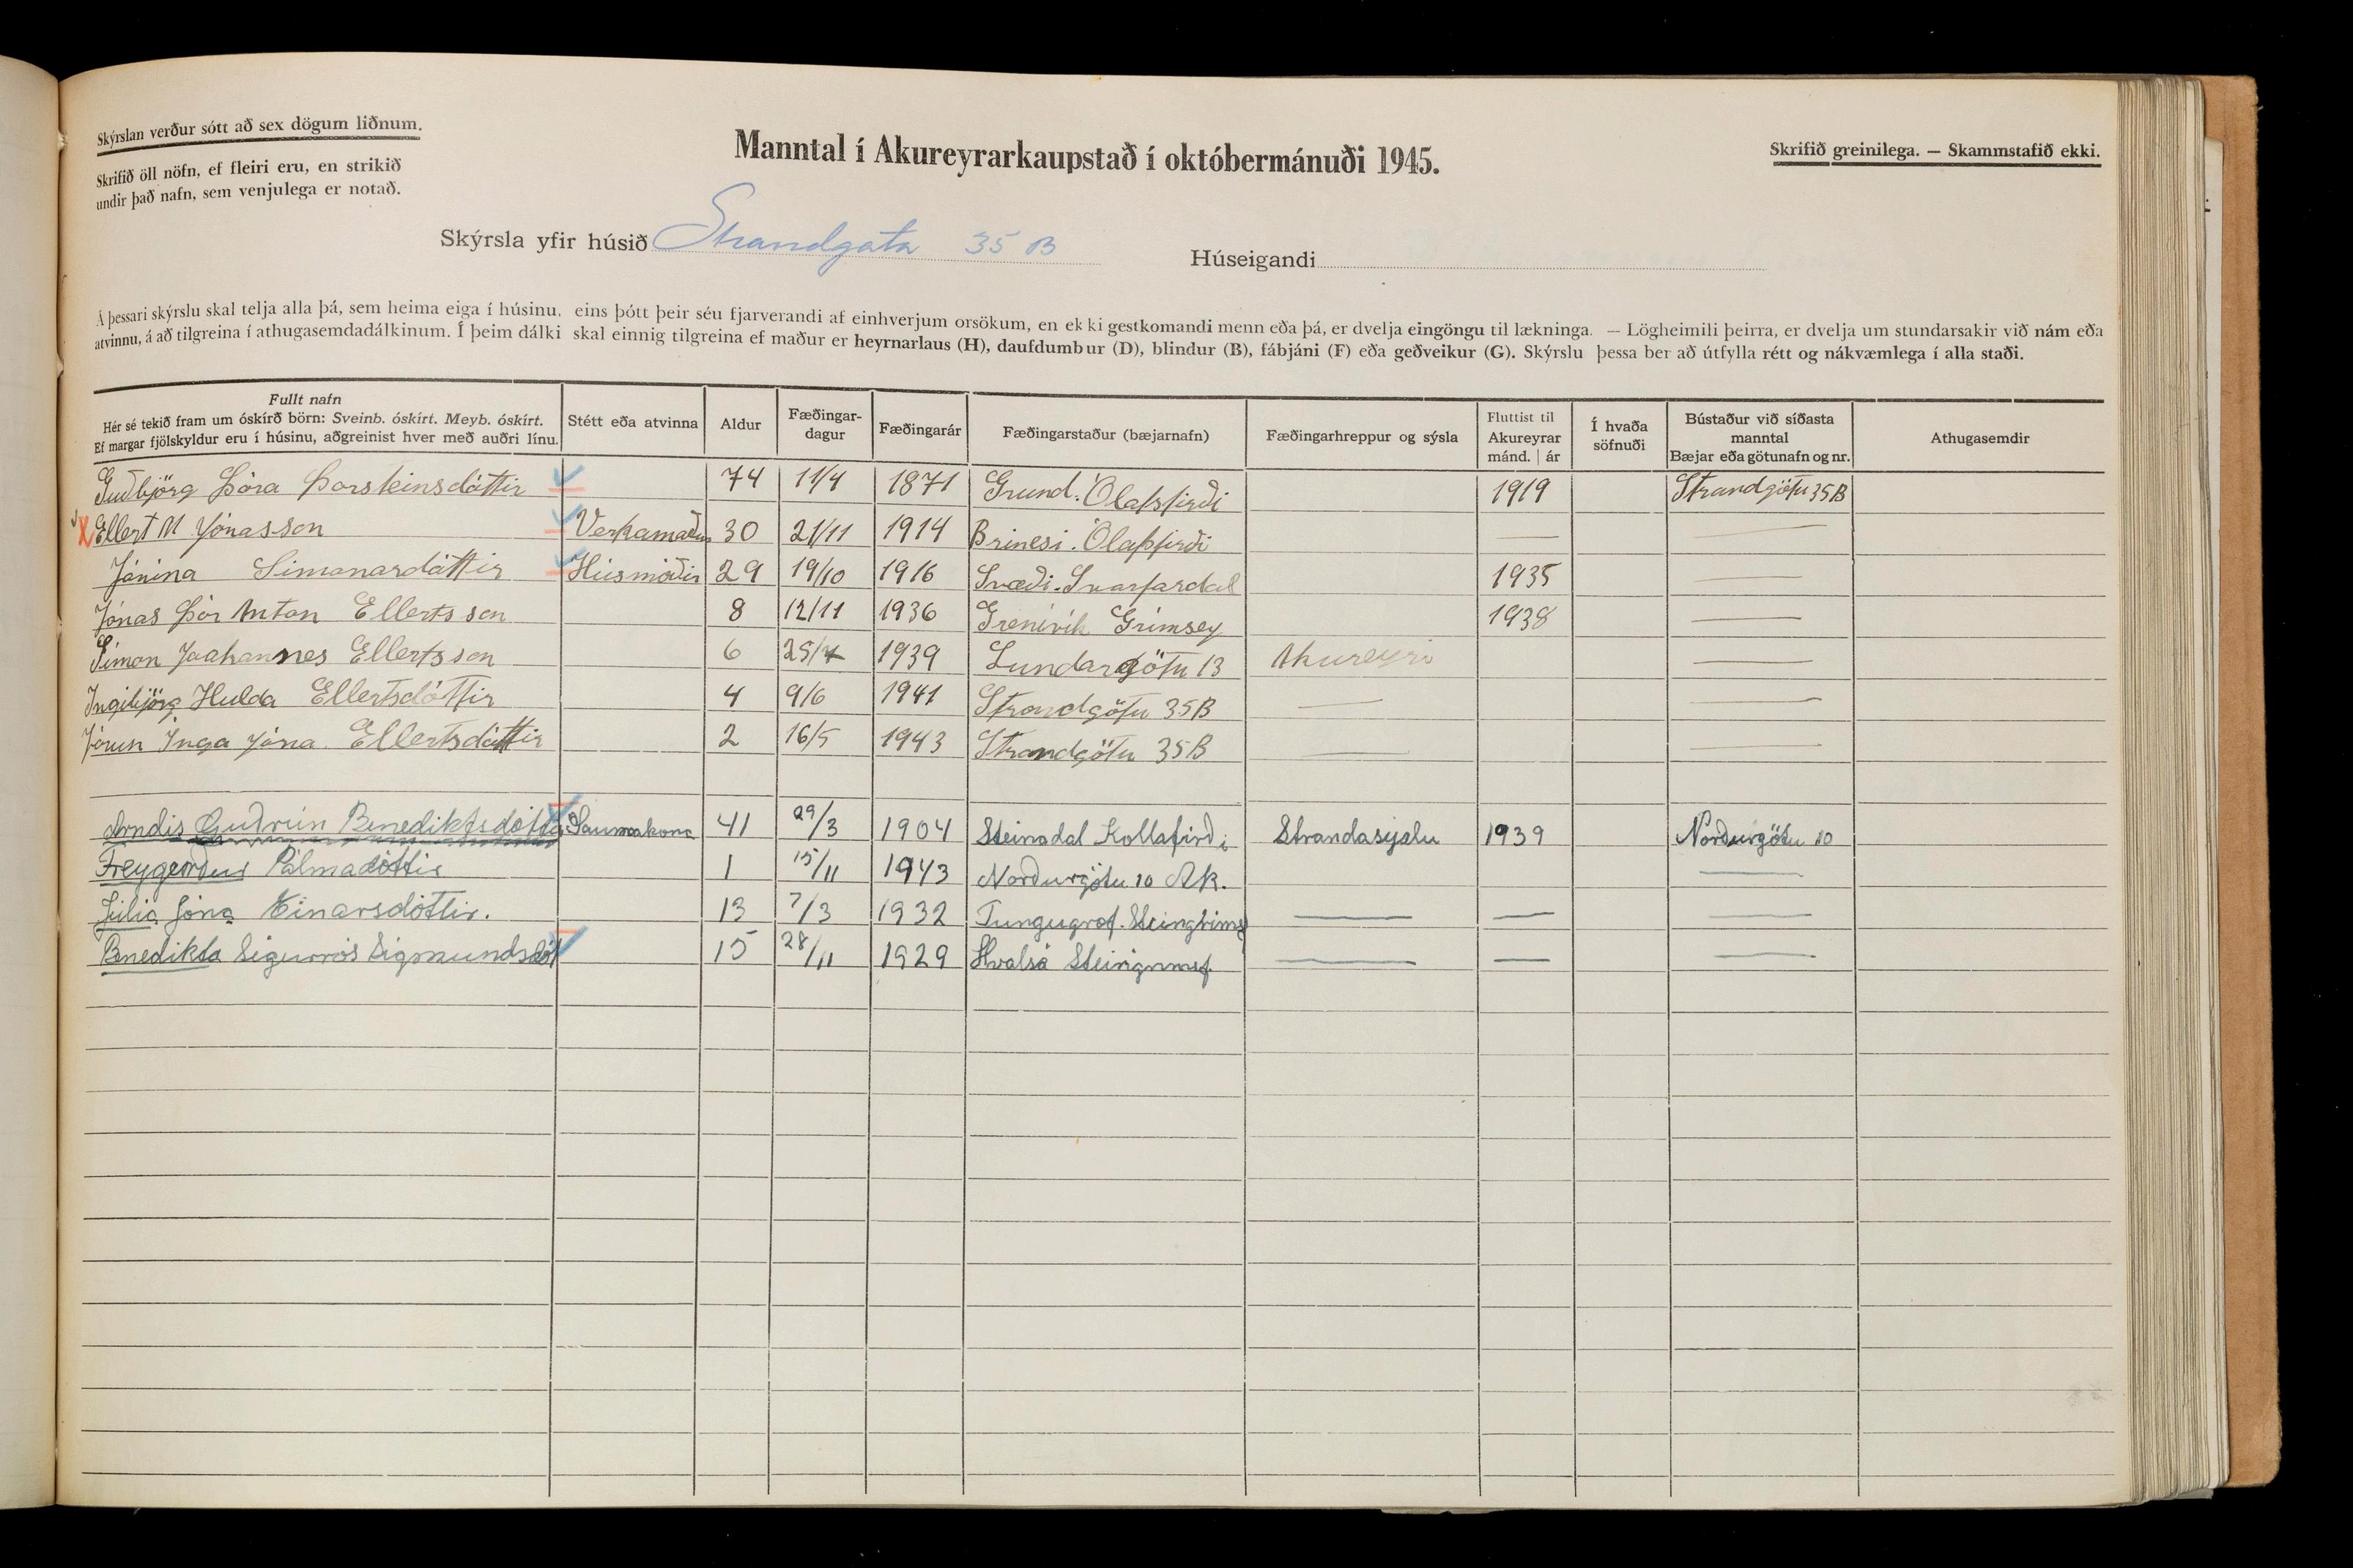 Skýrslan verður sótt að sex dögum liðnum.
Skrifið öll nöfn, ef fleiri eru, en strikið
undir það nafn, sem venjulega er notað.
Manntal í Akureyrarkaupstað í októbermánuði 1945.
Skrifið greinilega. — Skammstafið ekki.
Skýrsla yfir húsið Strandgata 35 B
Húseigandi
Á þessari skýrslu skal telja alla þá, sem heima eiga í húsinu, eins þótt þeir séu fjarverandi af einhverjum orsökum, en ekki gestkomandi menn eða þá, er dvelja eingöngu til lækninga. — Lögheimili þeirra, er dvelja um stundarsakir við nám eða
atvinnu, á að tilgreina í athugasemdadálkinum. Í þeim dálki skal einnig tilgreina ef maður er heyrnarlaus (H), daufdumbur (D), blindur (B), fábjáni (F) eða geðveikur (G). Skýrslu þessa ber að útfylla rétt og nákvæmlega í alla staði.
Fullt nafn
Hér sé tekið fram um óskírð börn: Sveinb. óskírt. Meyb. óskírt.
Ef margar fjölskyldur eru í húsinu, aðgreinist hver með auðri línu.
Stétt eða atvinna
Aldur
Fæðingar-
dagur
Fæðingarár
Fæðingarstaður (bæjarnafn)
Fæðingarhreppur og sýsla
Fluttist til
Akureyrar
mánd. | ár
Í hvaða
söfnuði
Bústaður við síðasta
manntal
Bæjar eða götunafn og nr.
Athugasemdir
Guðbjörg Þóra Þorsteinsdóttir 74 11/4 1871 Grund. Ólafsfirði 1919 Strandgötu 35B
X Ellert M Jónasson Verkamaður 30 21/11 1914 Brinesi. Ólafsfirði — —
Jónina Simonardóttir Húsmóðir 29 19/10 1916 Svæði. Svarfardal 1935 —
Jónas Þór Anton Ellertsson 8 12/11 1936 Grenivík Grimsey 1938 —
Símon Jóahannes Ellertsson 6 25/4 1939 Lundargötu 13 Akureyri —
Ingibjörg Hulda Ellertsdóttir 4 9/6 1941 Strandgötu 35B — —
Jórun Inga Jóna Ellertsdóttir 2 16/5 1943 Strandgötu 35B — —
Arndis Guðrún Benediktsdóttir Saumakona 41 29/3 1904 Steinadal Kollafirði Strandasýslu 1939 Norðurgötu 10
Freygerður Pálmadóttir 1 15/11 1943 Norðurgötu 10 Ak. —
Júlia Jóna Einarsdóttir. 13 7/3 1932 Tungugrof. Steingrimsf — — —
Benedikta Sigurrós Sigmundsdót 15 28/11 1929 Hvalsá Steingrimsf. — — —